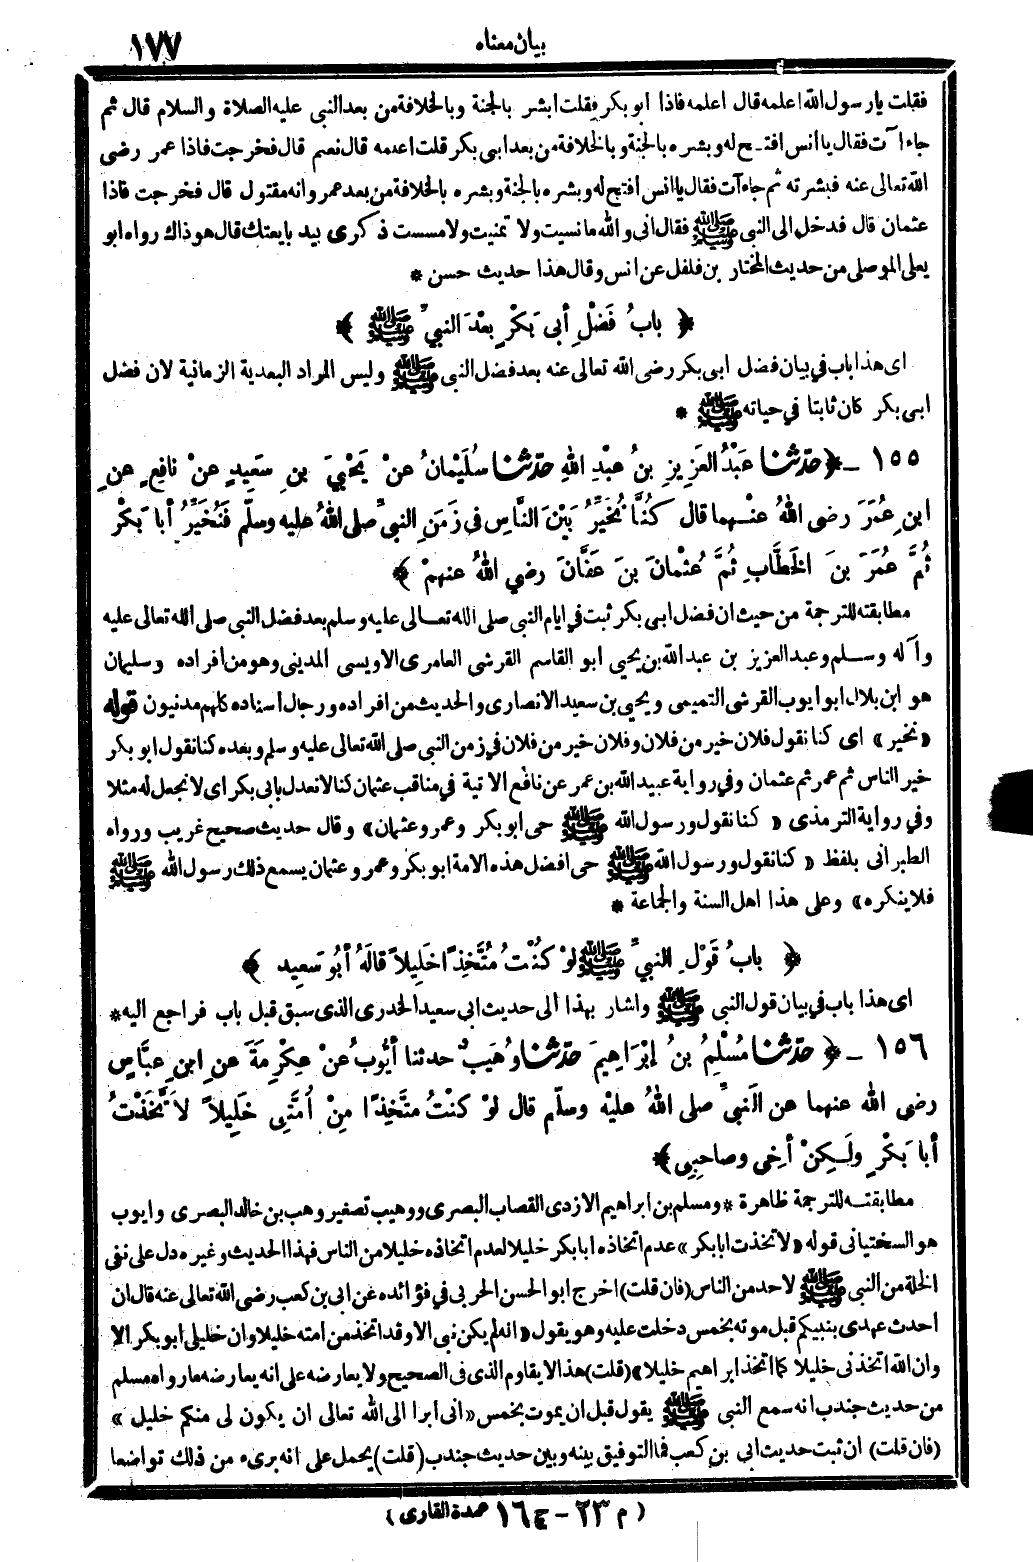 بيان معناه ١٧٧
فقلت يارسول الله اعلمه قال اعلمه فاذا ابوبكر فقلت ابشر بالجنة وبالخلافة من بعد النبى عليه الصلاة والسلام قال ثم
جاء آت فقال ياأنس افتح له وبشره بالجنة وبالخلافة من بعد ابى بكر قلت اعلمه قال نعم قال فخرجت فاذا عمر رضى
الله تعالى عنه فبشرته ثم جاء آت فقال ياانس افتح له وبشره بالجنة وبشره بالخلافة من بعد عمر وانه مقتول قال فخرجت فاذا
عثمان قال فدخل الى النبى ﷺ فقال انى والله مانسيت ولا تمنيت ولا مسست ذكرى بيد بايعتك قال هو ذاك رواه ابو
يعلى الموصلى من حديث المختار بن فلفل عن انس وقال هذا حديث حسن *
﴿ بابُ فَضْلِ أبى بَكْرٍ بعْدَ النبيِّ ﷺ ﴾
اى هذا باب في بيان فضل ابى بكر رضى الله تعالى عنه بعد فضل النبى ﷺ وليس المراد البعدية الزمانية لان فضل
ابى بكر كان ثابتا في حياته ﷺ *
١٥٥ ـ ﴿ حدّثنا عَبْدُ العَزِيزِ بنُ عبْدِ اللهِ حدّثنا سُلَيْمانُ عنْ يَحْيَى بنِ سَعِيدٍ عنْ نافِعٍ عنِ
ابنِ عُمَرَ رضى اللهُ عنْهما قال كُنَّا نُخَيِّرُ بَيْنَ النَّاسِ فى زَمَنِ النبيِّ صلى اللهُ عليه وسلّم فَنُخَيِّرُ أبا بَكْرٍ
ثُمَّ عُمَرَ بنَ الخَطَّابِ ثُمَّ عُثْمانَ بنَ عَفَّانَ رضي اللهُ عنهمْ ﴾
مطابقته للترجمة من حيث ان فضل ابى بكر ثبت في ايام النبى صلى الله تعالى عليه وسلم بعد فضل النبى صلى الله تعالى عليه
وآله وسلم وعبد العزيز بن عبد الله بن يحيى ابو القاسم القرشى العامرى الاويسى المدينى وهو من افراده وسليمان
هو ابن بلال ابو ايوب القرشى التميمى ويحيى بن سعيد الانصارى والحديث من افراده ورجال اسناده كلهم مدنيون قوله
«نخير» اى كنا نقول فلان خير من فلان وفلان خير من فلان في زمن النبى صلى الله تعالى عليه وسلم وبعده كنا نقول ابو بكر
خير الناس ثم عمر ثم عثمان وفي رواية عبيد الله بن عمر عن نافع الاتية في مناقب عثمان كنا لا نعدل بابى بكر اى لا نجعل له مثلا
وفي رواية الترمذى «كنا نقول ورسول الله ﷺ حى ابو بكر وعمر وعثمان» وقال حديث صحيح غريب ورواه
الطبرانى بلفظ «كنا نقول ورسول الله ﷺ حى افضل هذه الامة ابو بكر وعمر وعثمان يسمع ذلك رسول الله ﷺ
فلا ينكره» وعلى هذا اهل السنة والجماعة *
﴿ بابُ قَوْلِ النبيِّ ﷺ لوْ كُنْتُ مُتَّخِذًا خَلِيلاً قالَهُ أبُو سَعِيدٍ ﴾
اى هذا باب في بيان قول النبى ﷺ واشار بهذا الى حديث ابى سعيد الخدرى الذى سبق قبل باب فراجع اليه *
١٥٦ ـ ﴿ حدّثنا مُسْلِمُ بنُ إبْرَاهِيمَ حدّثنا وُهَيْبٌ حدثنا أيُّوبُ عنْ عِكْرِمَةَ عنِ ابنِ عبَّاسٍ
رضى الله عنهما عن النَّبيِّ صلى اللهُ عليْه وسلّم قال لوْ كنْتُ متَّخِذًا مِنْ أُمَّتِى خَلِيلاً لاتَّخَذْتُ
أبا بَكْرٍ ولَـكِنْ أخِى وصاحِبِى ﴾
مطابقته للترجمة ظاهرة * ومسلم بن ابراهيم الازدى القصاب البصرى ووهيب تصغير وهب بن خالد البصرى وايوب
هو السختيانى قوله «لاتخذت ابابكر» عدم اتخاذه ابابكر خليلا لعدم اتخاذه خليلا من الناس فهذا الحديث وغيره دل على نفى
الخلة من النبى ﷺ لاحد من الناس (فان قلت) اخرج ابو الحسن الحربى في فوائده عن ابى بن كعب رضى الله تعالى عنه قال ان
احدث عهدى بنبيكم قبل موته بخمس دخلت عليه وهو يقول «انه لم يكن نبى الا وقد اتخذ من امته خليلا وان خليلى ابو بكر الا
وان الله اتخذنى خليلا كما اتخذ ابراهيم خليلا» (قلت) هذا لا يقاوم الذى فى الصحيح ولا يعارضه على انه يعارضه ما رواه مسلم
من حديث جندب انه سمع النبى ﷺ يقول قبل ان يموت بخمس «انى ابرا الى الله تعالى ان يكون لى منكم خليل»
(فان قلت) ان ثبت حديث ابى بن كعب فما التوفيق بينه وبين حديث جندب (قلت) يحمل على انه برىء من ذلك تواضعا
(م ٢٣ - ج ١٦ عمدة القارى)